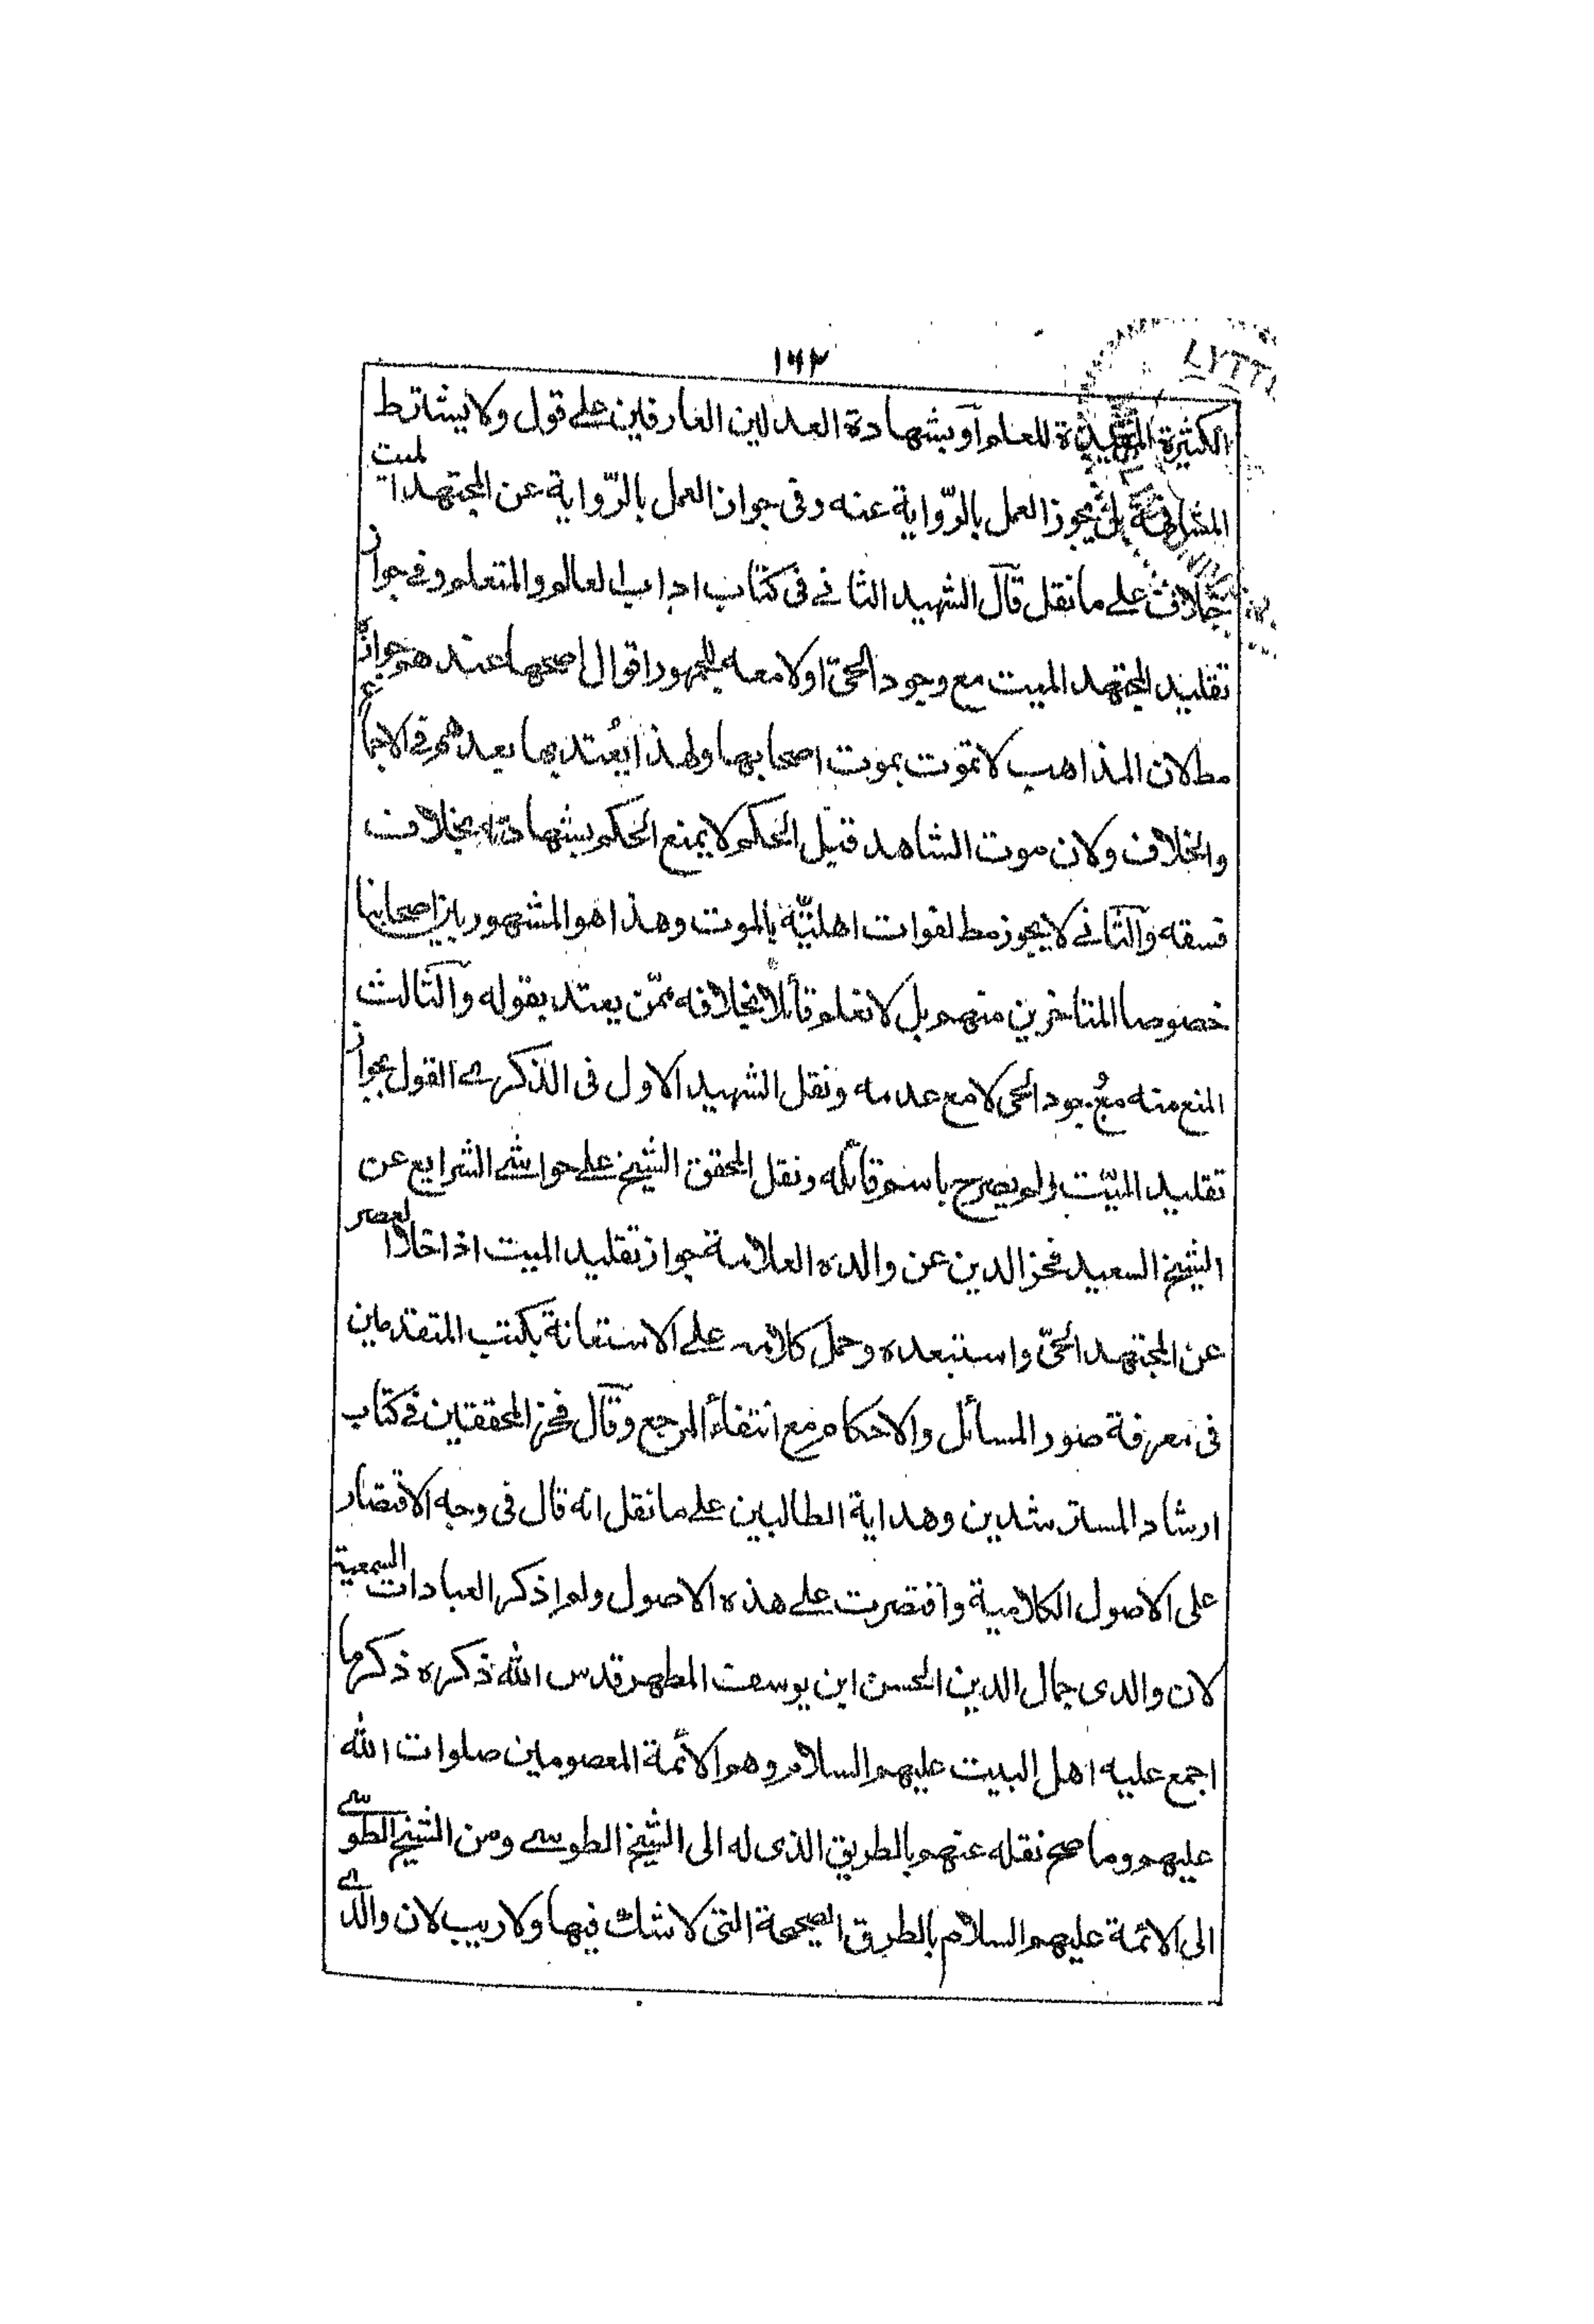 ۱۶۲
LYTT
الكثيرة المفيدة للعلم او بشهادة العدلين العارفين على قول ولا يشترط
المشافهة بل يجوز العمل بالرّواية عنه وفى جواز العمل بالرّواية عن المجتهد الميت
خلاف على ما نقل قال الشهيد الثانے فى كتاب اداب العالم والمتعلم وفے جواز
تقليد المجتهد الميت مع وجود الحىّ اولا معه للجمهور اقوال اصحها عندهم جوازه
مط لان المذاهب لا تموت بموت اصحابها ولهذا يُعتد بها بعدهم فے الاجماع
والخلاف ولان موت الشاهد قبل الحكم لا يمنع الحكم بشهادته بخلاف
فسقه والثانے لا يجوز مط لفوات اهليّته بالموت وهذا هو المشهور بين اصحابنا
خصوصا المتاخرين منهم بل لا نعلم قائلا بخلافه ممّن يعتد بقوله والثالث
المنع منه مع وجود الحى لا مع عدمه ونقل الشهيد الاول فى الذكرے القول بجواز
تقليد الميّت ولم يصرح باسم قائله ونقل المحقق الشيخ على حواشے الشرايع عن
الشيخ السعيد فخر الدين عن والده العلامة جواز تقليد الميت اذا خلا العصر
عن المجتهد الحىّ واستبعده وحمل كلامه على الاستعانة بكتب المتقدمين
فى معرفة صور المسائل والاحكام مع انتفاء المرجع وقال فخر المحققين فے كتاب
ارشاد المسترشدين وهداية الطالبين على ما نقل انه قال فى وجه الاقتصار
على الاصول الكلامية واقتصرت على هذه الاصول ولم اذكر العبادات السمعية
لان والدى جمال الدين الحسن ابن يوسف المطهر قدس الله ذكره ذكر ما
اجمع عليه اهل البيت عليهم السلام وهم الائمة المعصومين صلوات الله
عليهم وما صح نقله عنهم بالطريق الذى له الى الشيخ الطوسے ومن الشيخ الطوسے
الى الائمة عليهم السلام بالطرق الصحيحة التى لا شك فيها ولا ريب لان والدے